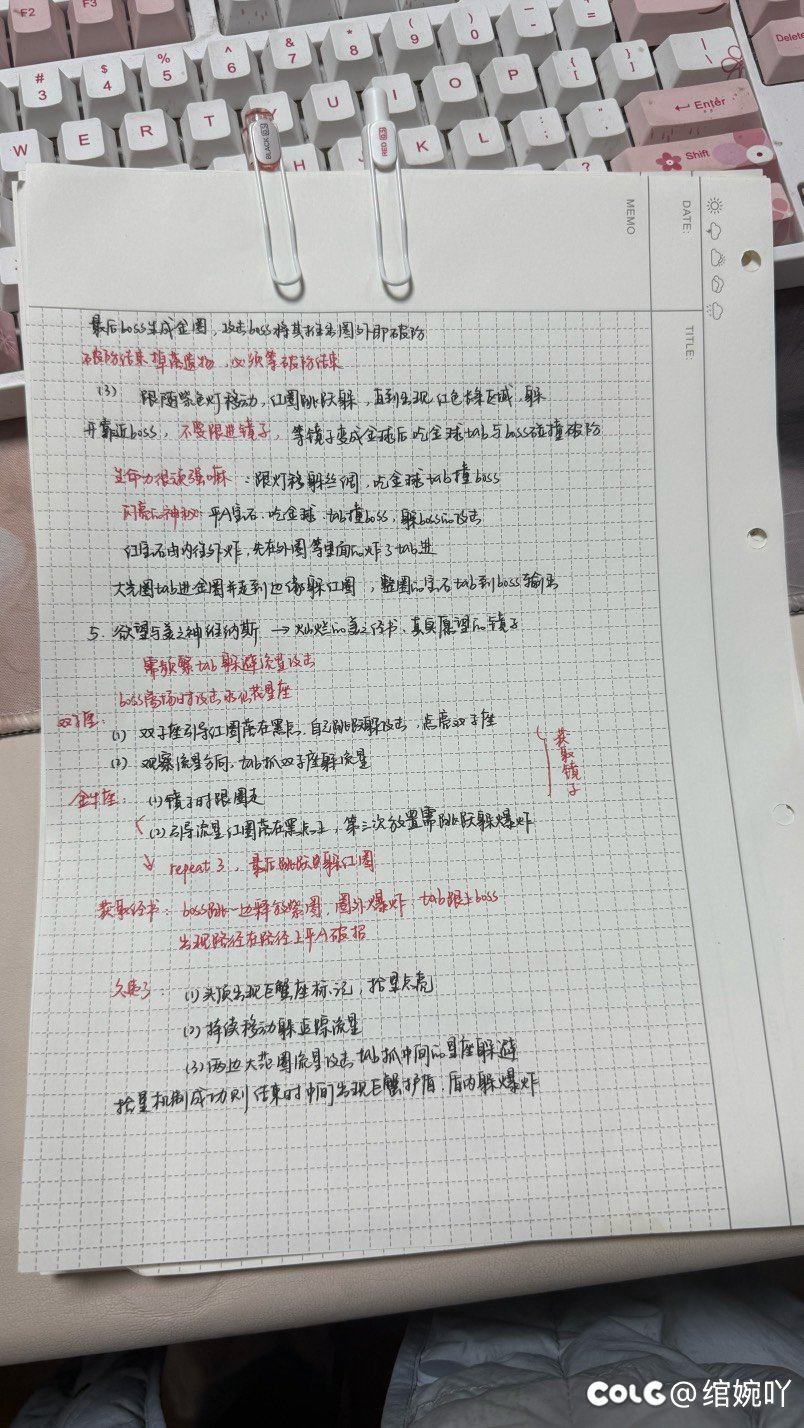 F2
F3
# 3
$ 4
% 5
^ 6
& 7
* 8
( 9
) 0
- -
+ =
Delete
W E R T Y U I O P { [ } ] | \
Enter
H J K L
? Shift
BLACK 0.5
RED 0.5
MEMO
DATE:
TITLE:
最后boss生成金圈，攻击boss将其推出圈外即破防
破防结束掉落宝物，必须等破防结束
(3) 跟随紫色灯移动，红圈跳跃躲，直到出现红色长条区域，躲
开靠近boss，不要跟进镜子，等镜子变成金球后吃金球tab与boss碰撞破防
生命力很顽强嘛：跟灯移躲丝绸，吃金球tab撞boss
闪亮的神秘：平A宝石，吃金球，tab撞boss，躲boss的攻击
红宝石由内往外炸，先在外圈等里面的炸了tab进
大光圈tab进金圈并走到边缘躲红圈，整圈的宝石tab到boss输出
5. 欲望与美之神维纳斯 → 灿烂的美之经书、真实愿望的镜子
需频繁tab躲避流星攻击
boss离场时攻击水仙花星座
双子座：
(1) 双子座引导红圈落在黑点，自己跳跃躲攻击，点亮双子座
(2) 观察流星方向，tab抓双子座躲流星
获取镜子
金牛座：(1) 镜子时跟圈走
(2) 引导流星红圈落在黑点上，第三次放置需跳跃躲爆炸
repeat 3，最后跳跃躲红圈
获取经书：boss跳一边释放紫圈，圈外爆炸，tab跟上boss
出现路径在路径上平A破招
(1) 头顶出现巨蟹座标记，拾星点亮
(2) 持续移动躲追踪流星
(3) 两边大范围流星攻击tab抓中间的星座躲避
拾星机制成功则结束时中间出现巨蟹护盾，盾内躲爆炸
COLG@绾婉吖